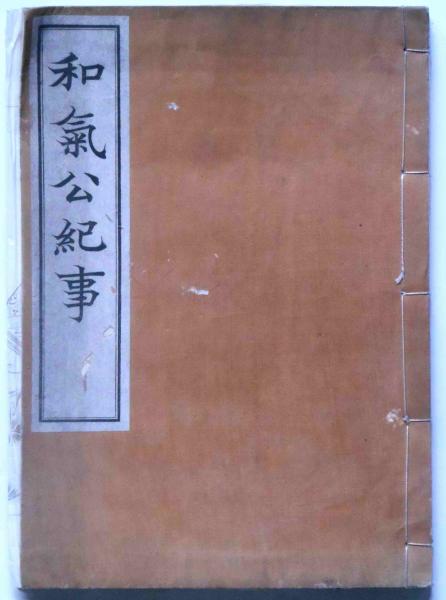 和氣公紀事